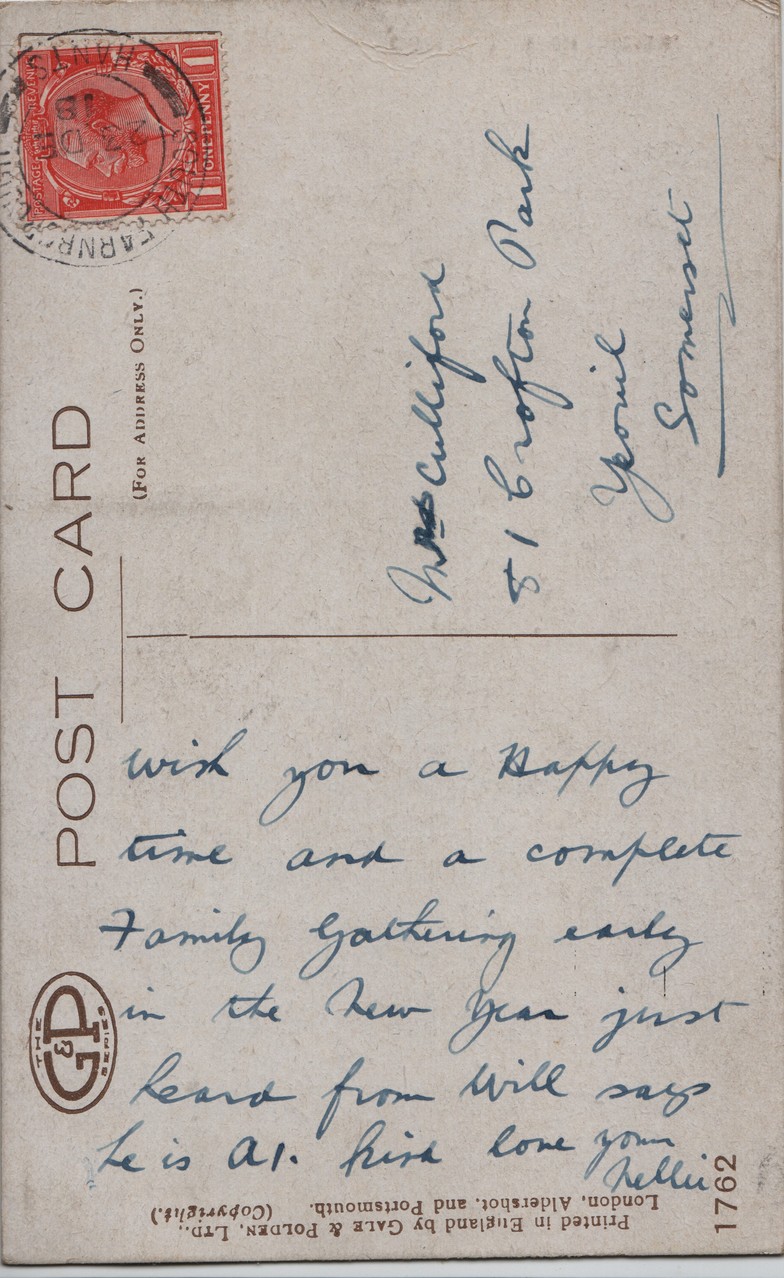 POST CARD
(FOR ADDRESS ONLY.)
THE
G&P
SERIES
POSTAGE REVENUE
ONE PENNY
1 1
HANTS
18
23 DE
wish you a Happy
time and a complete
Family Gathering early
in the New Year just
heard from Will says
he is A1. kind love your
Nellie
Mrs Culliford
81 Crofton Park
Yeovil
Somerset
Printed in England by GALE & POLDEN, LTD.,
London, Aldershot, and Portsmouth. (Copyright.)
1762